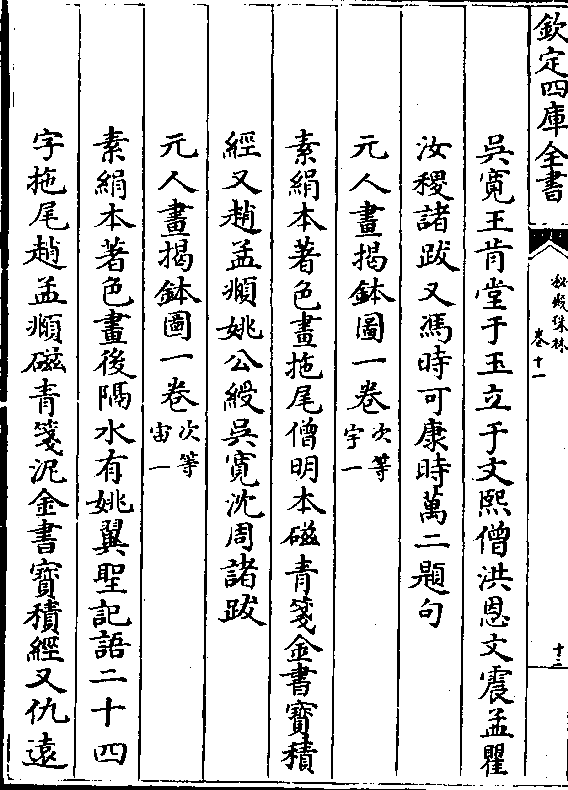 欽定四庫全書
秘殿珠林
卷十一
十三
吳寛王肯堂于玉立于文熙僧洪恩文震孟瞿
汝稷諸跋又馮時可康時萬二題句
元人畫揭鉢圖一卷次等宇一
素絹本著色畫拖尾僧明本磁青箋金書寶積
經又趙孟頫姚公綬吳寛沈周諸跋
元人畫揭鉢圖一卷次等宙一
素絹本著色畫後隔水有姚翼聖記語二十四
字拖尾趙孟頫磁青箋泥金書寶積經又仇遠